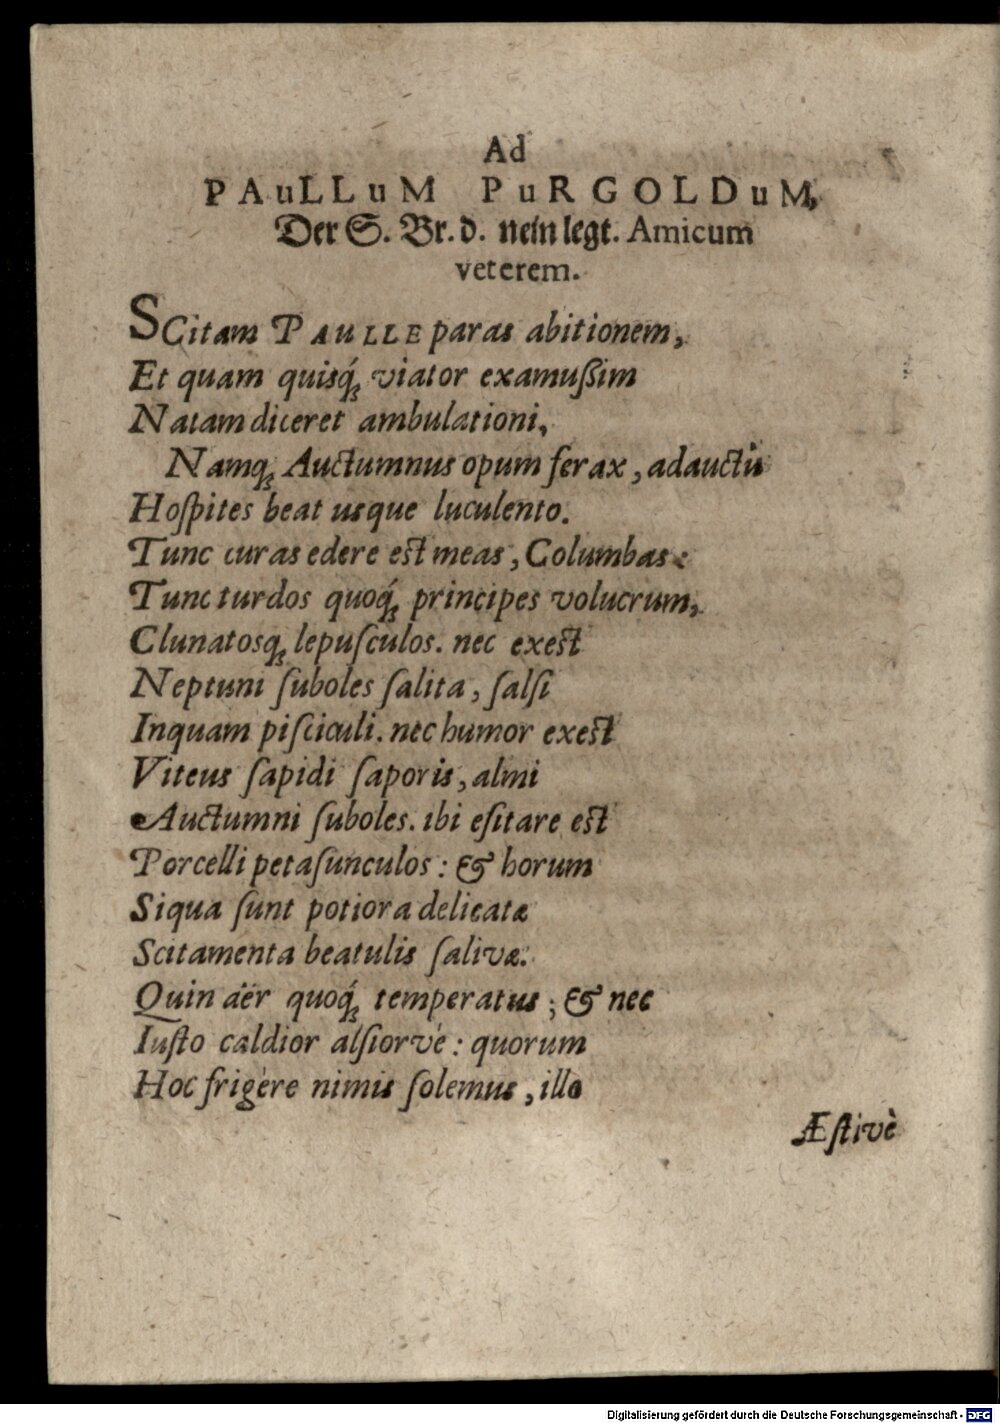 Ad
PAuLLuM PuRGOLDuM,
Der S. Br. d. nein legt. Amicum
veterem.
SCitam PAuLLE paras abitionem,
Et quam quisq́; viator examußim
Natam diceret ambulationi,
Namq; Auctumnus opum ferax, adauctu
Hoſpites beat usque luculento.
Tunc curas edere eſt meas, Columbas:
Tunc turdos quoq́; principes volucrum,
Clunatosq; lepuſculos. nec exeſt
Neptuni ſuboles ſalita, ſalſi
Inquam piſciculi. nec humor exeſt
Viteus ſapidi ſaporis, almi
Auctumni ſuboles. ibi eſitare eſt
Porcelli petaſunculos: & horum
Siqua ſunt potiora delicatæ
Scitamenta beatulis ſalivæ.
Quin aër quoq́; temperatus; & nec
Iuſto caldior alſiorvè: quorum
Hoc frigère nimis ſolemus, illo
Æſtivè
Digitalisierung gefördert durch die Deutsche Forschungsgemeinschaft - DFG